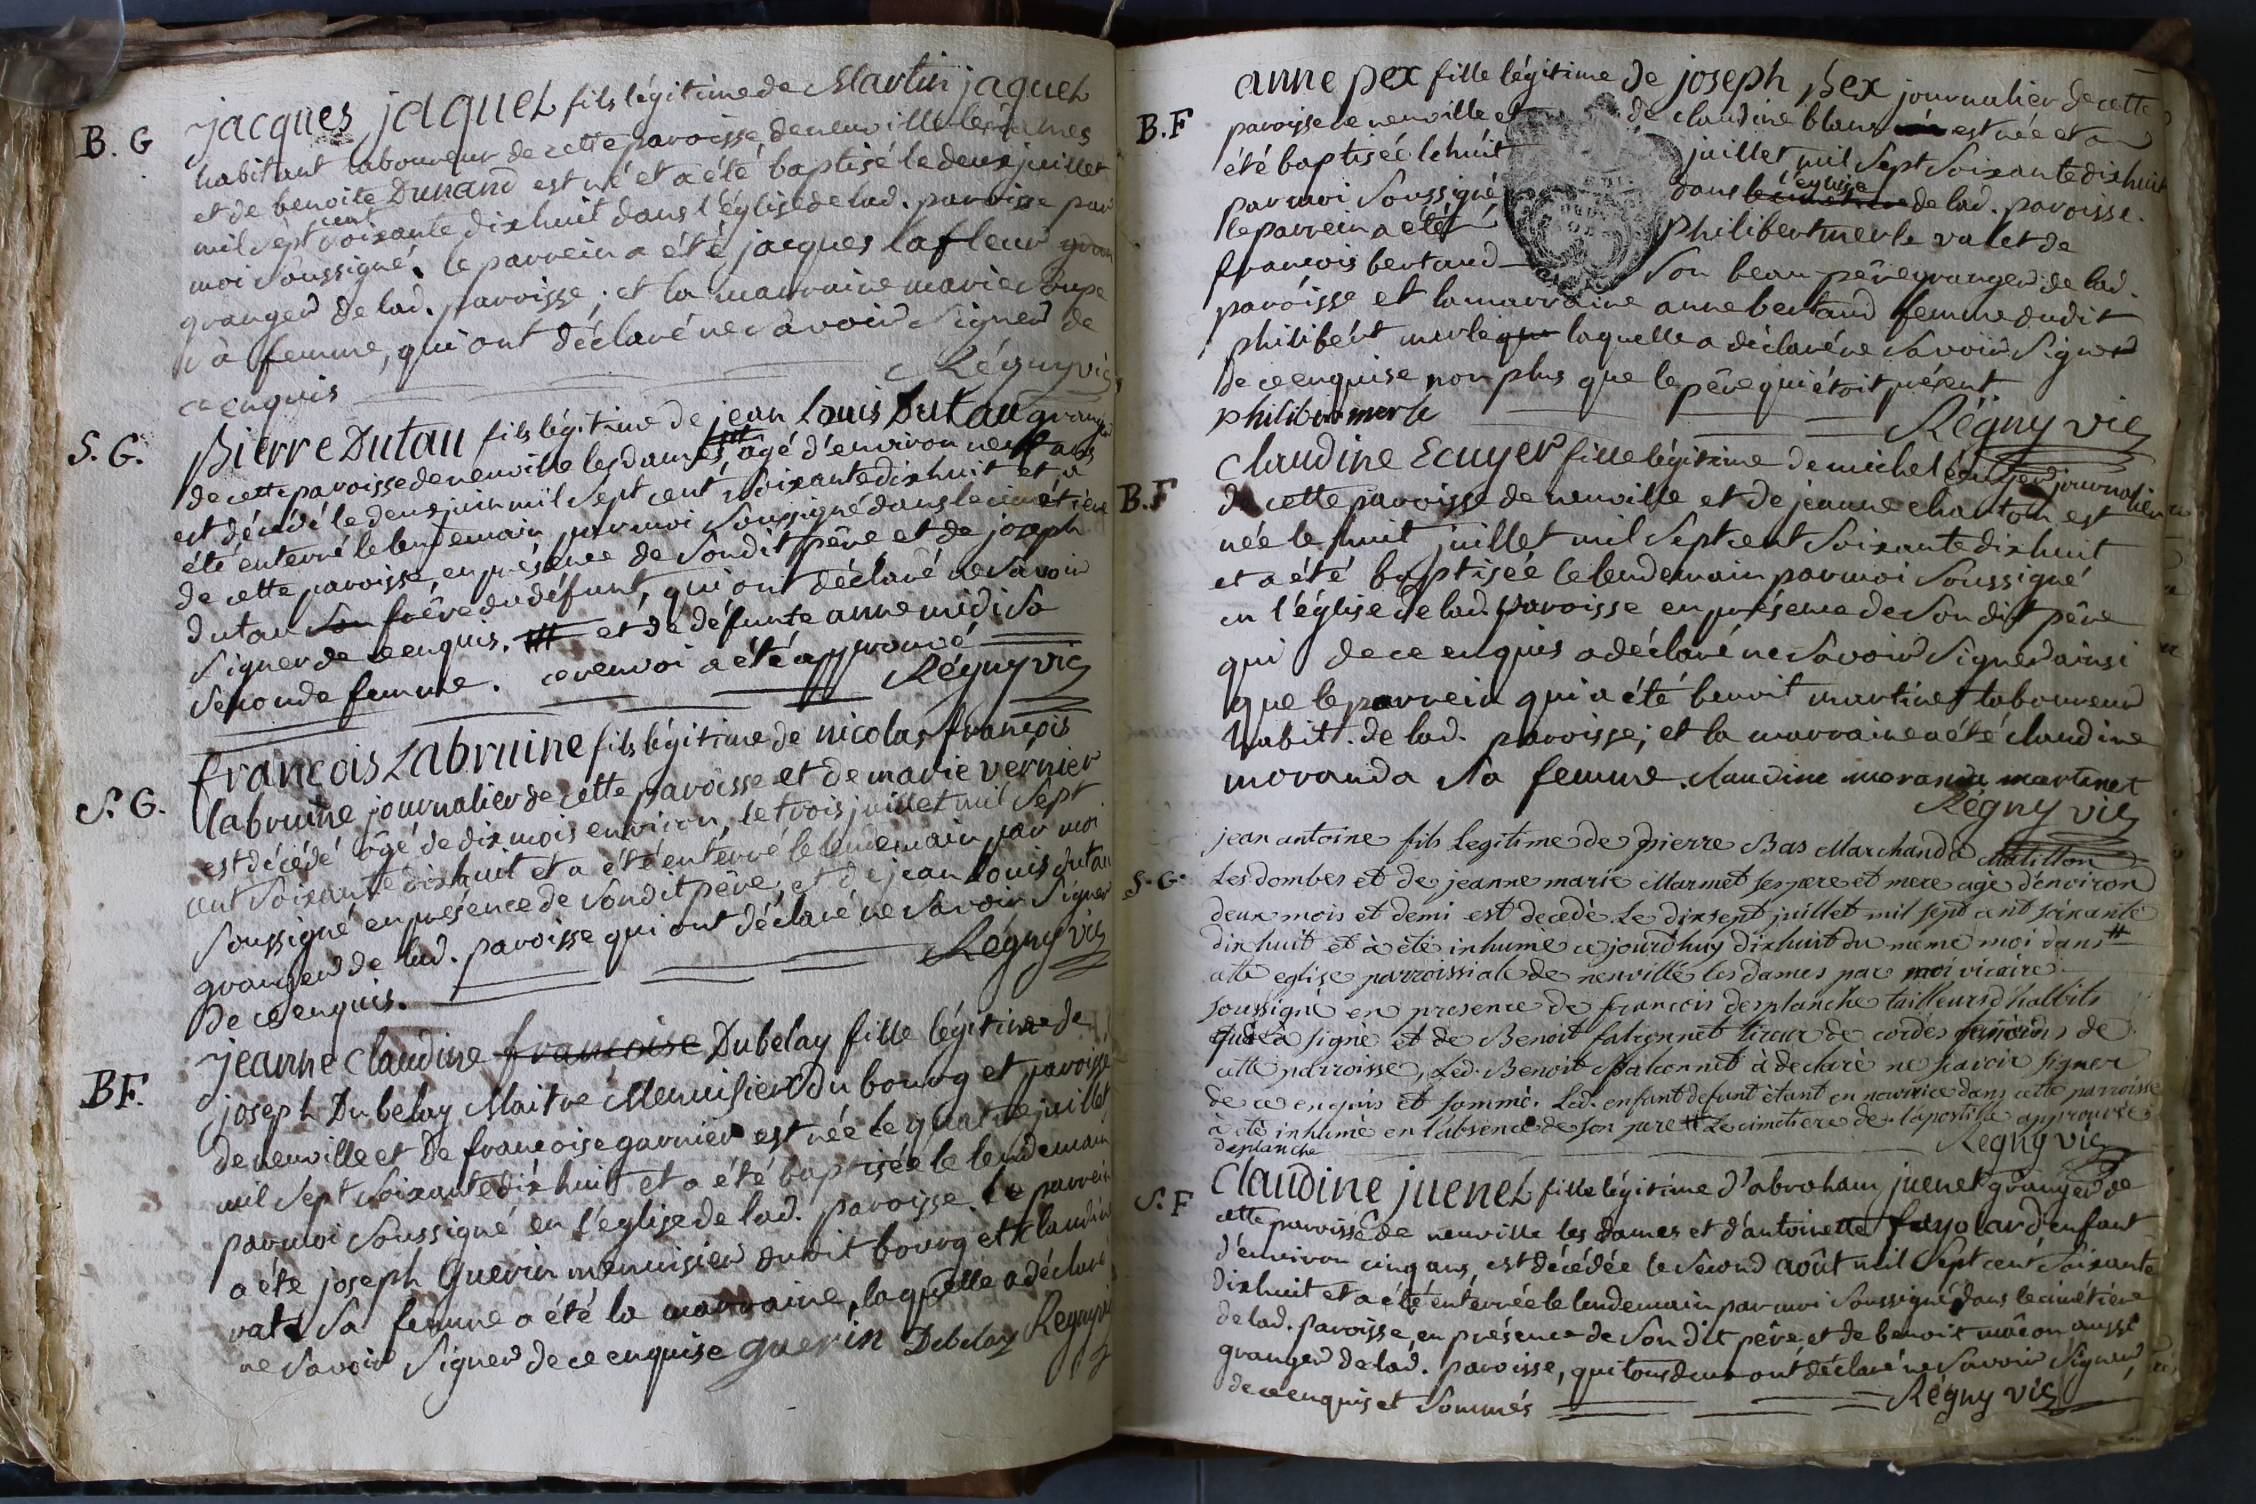 B. G
jacques jaquet fils légitime de Martin jaquet
habitant laboureur de cette paroisse de neuville les dames
et de benoite Dunand est né et a été baptisé le deux juillet
mil sept cent soixante dixhuit dans l'église de lad. paroisse par
moi soussigné. le parrein a été jacques lafleur
granger de lad. paroisse ; et la marraine marie
sa femme, qui ont déclaré ne savoir signer de
ce enquis
Régny vic
S. G.
Pierre Dutau fils légitime de jean Louis Dutau granger
de cette paroisse de neuville les dames, âgé d'environ neuf ans
est décédé le deux juin mil sept cent soixante dixhuit et a
été enterré le lendemain par moi soussigné dans le cimétière
de cette paroisse, en présence de son dit père et de joseph
dutau son frère du défunt, qui ont déclaré ne savoir
signer de ce enquis. # et de défunte anne midi sa
seconde femme. ce renvoi a été approuvé
Régny vic
S. G.
françois Labruine fils légitime de nicolas françois
labruine journalier de cette paroisse et de marie vernier
est décédé âgé de dix mois environ, le trois juillet mil sept
cent soixante dixhuit et a été enterré le lendemain par moi
soussigné en présence de son dit père, et de jean Louis dutau
granger de lad. paroisse qui ont déclaré ne savoir signer
de ce enquis.
Régny vic
BF.
jeanne Claudine francoise Dubelay fille légitime de
joseph Dubelay Maitre Menuisier du bourg et paroisse
de neuville et de francoise garnier est née le quatre juillet
mil sept soixante dix huit et a été baptisée le lendemain
par moi soussigné en l'eglise de lad. paroisse. le parrein
a été joseph Guerin menuisier dudit bourg et claudine
rat sa femme a été la marraine, laquelle a déclaré
ne savoir signer de ce enquise guerin Debelay Regny vic
B. F
anne pex fille légitime de joseph pex journalier de cette
paroisse de neuville et de claudine blanc est née et a
été baptisée le huit juillet mil sept soixante dixhuit
par moi soussigné dans le cimetiere l'eglise de lad. paroisse.
le parrein a été philibert merle valet de
francois bertaud son beau-père granger de lad.
paroisse et la marraine anne bertaud femme dudit
philibert merle que laquelle a déclaré ne savoir signer
de ce enquise, non plus que le père qui étoit présent
philibert merle
Régny vic
B. F
Claudine Ecuyer fille légitime de michel écuyer journalier
de cette paroisse de neuville et de jeanne chanton est
née le huit juillet mil sept cent soixante dixhuit
et a été baptisée le lendemain par moi soussigné
en l'église de lad. paroisse en présence de son dit père
qui de ce enquis a déclaré ne savoir signer ainsi
que le parrein qui a été benoit martinet laboureur
habit. de lad. paroisse ; et la marraine a été claudine
moranda sa femme. claudine moranda martinet
Régny vic
S. G.
jean antoine fils legitime de pierre Bas Marchand à Chatillon
Les dombes et de jeanne marie Marmet ses pere et mere agé d'environ
deux mois et demi est decedè le dix sept juillet mil sept cent soixante
dix huit et à été inhumé ce jourd'huy dixhuit du meme moi dans #
cette eglise parroissiale de neuville les dames par moi vicaire
soussigné en presence de francois desplanche tailleurs d'halbits
qui à signé et de Benoit falconnet tireur de cordes de
cette parroisse, Led. Benoit falconnet à declaré ne scavoir signer
de ce enquis et sommé. Led. enfant defunt étant en nourrice dans cette parroisse
à été inhumé en l'absence de son pere # Le cimetiere de. l'apostille approuvée
desplanche
Regny vic
S. F
Claudine juenet fille légitime d'abraham juenet granger de
cette paroisse de neuville les dames et d'antoinette fayolard, enfant
d'environ cinq ans, est décédée le second août mil sept cent soixante
dixhuit et a été enterrée le lendemain par moi soussigné dans le cimétière
de lad. paroisse, en présence de son dit père et de benoit mâcon aussi
granger de lad. paroisse, qui tous deux ont déclaré ne savoir signer,
de ce enquis et sommés
Régny vic